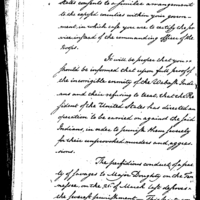 States consents to a similar arrangement
to the exposed counties within your govern-
ment, in which case you are to notify the
commanding officer of the
troops.
It will be proper that you
should be informed that upon full proof of
the incorrigible enmity of the Wabash Ind-
ians and their refusing to treat, that the Pre-
sident of the United States has directed an
operation to be carried on against the said
Indians, in order to punish them severely
for their unprovoked murders and aggres-
sions.
The perfidious conduct of a par-
ty of savages to Major Doughty on the Ten-
nessee, on the 22d of March last deserves
the severest punishment